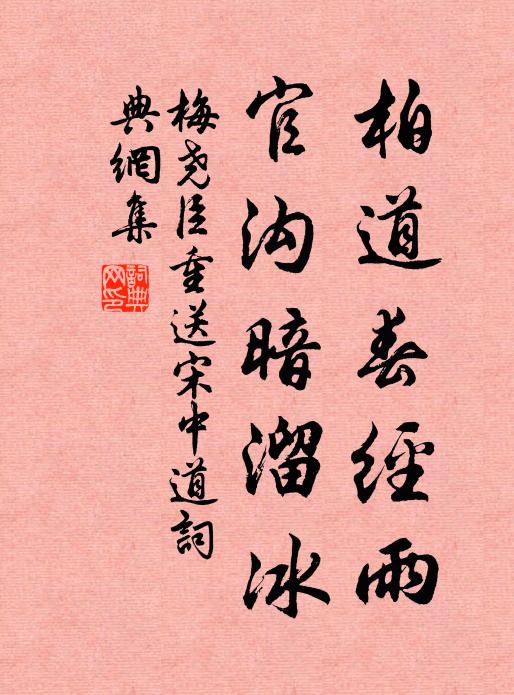 柏道春經雨
官沟暗溜冰
梅尧臣重送宋中道詞
典網集
詞典网印